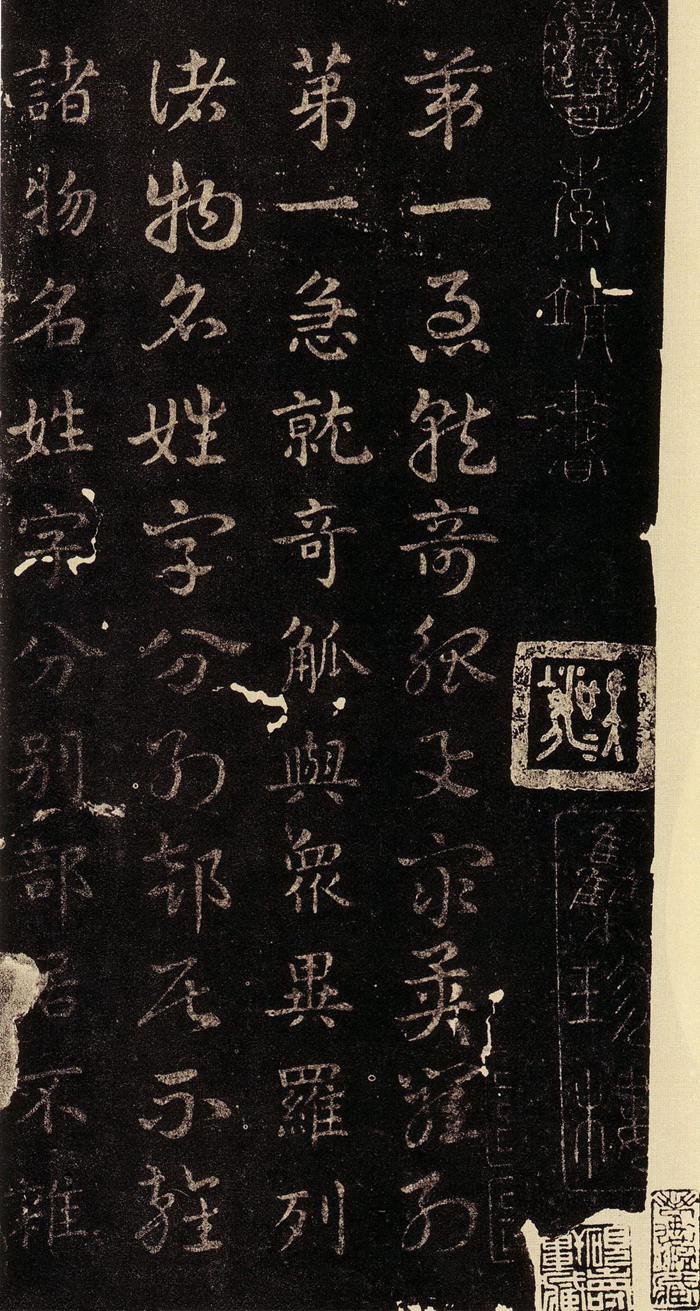 索靖書
第一急就奇觚与衆異羅列
第一急就奇觚與衆異羅列
諸物名姓字分別部居不雜
諸物名姓字分別部居不雜